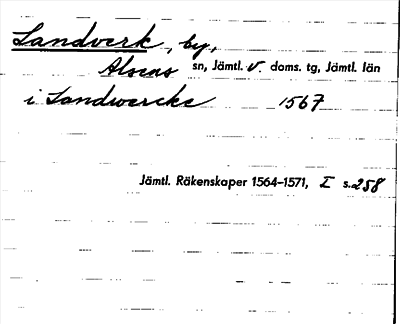 Landverk, by,
Alsens sn, Jämtl. v. doms. tg, Jämtl. län
i Landwercke 1567
Jämtl. Räkenskaper 1564–1571, I s. 258